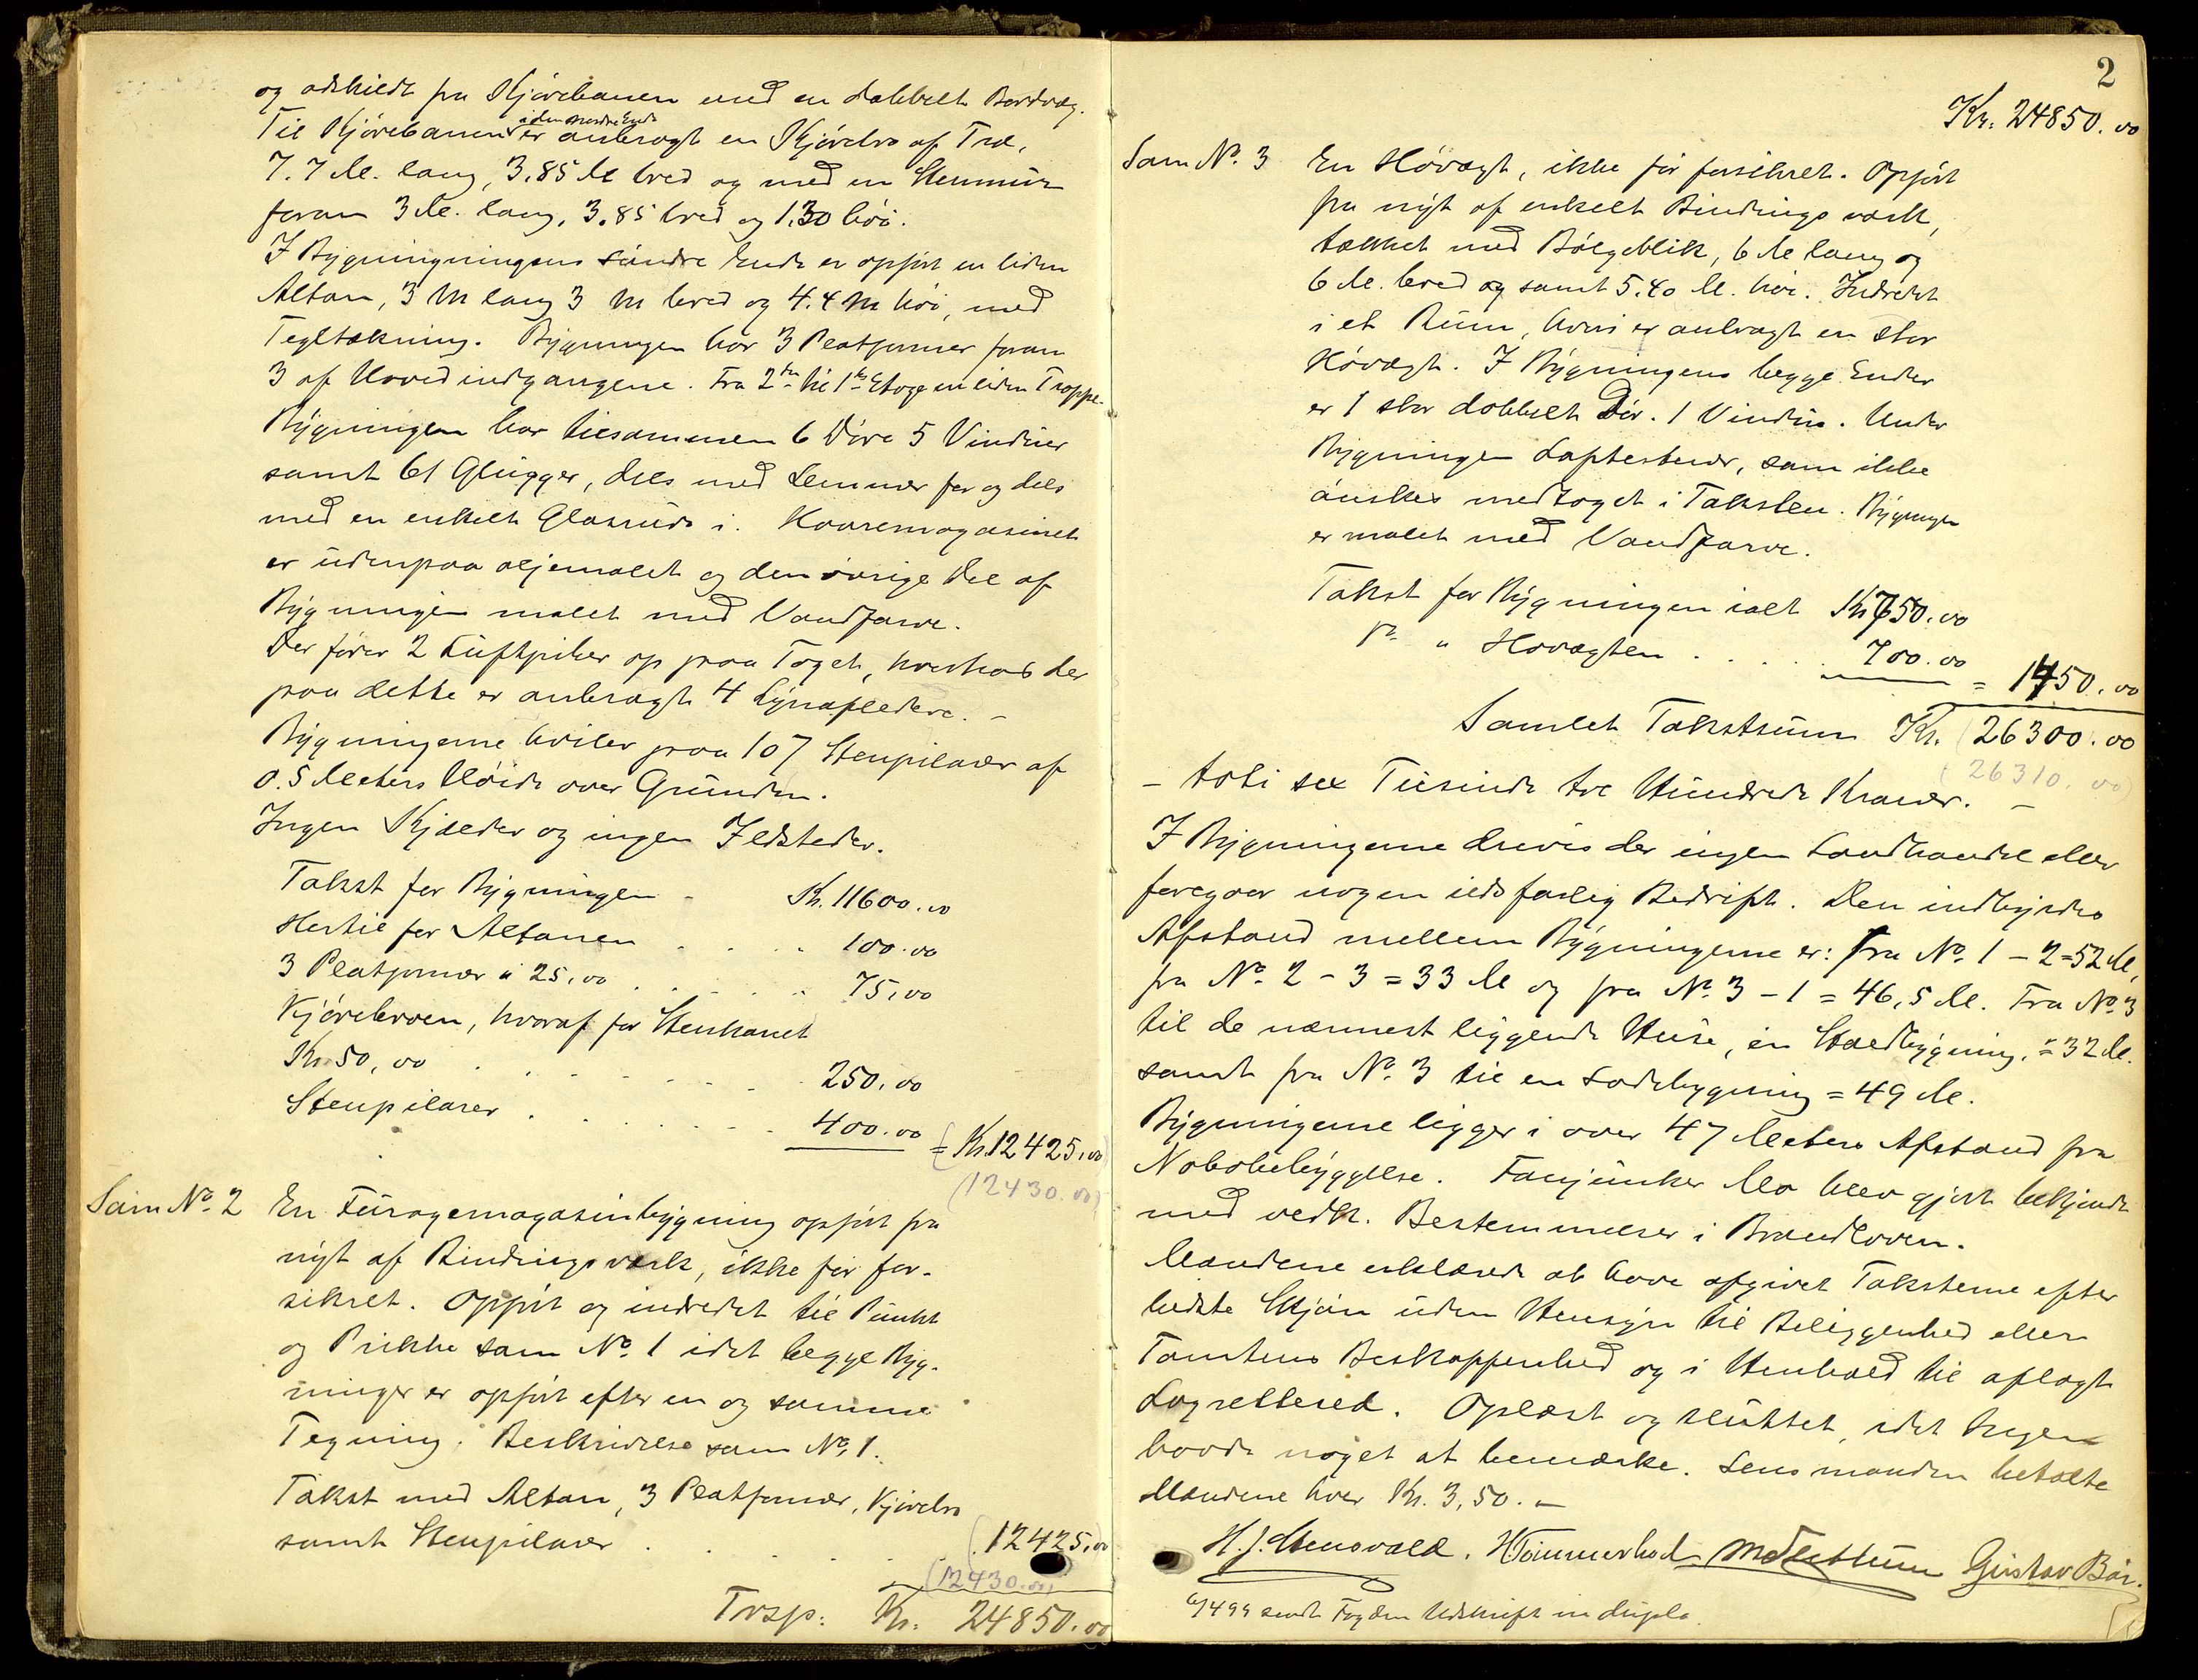 og adskildt fra Kjørebanen med en dobbelt Bordvæg.
Til Kjørebanen i den nordre Ende er anbragt en Kjørebro af Træ,
7.7 M. lang, 3.85 M bred og med en Stenmur
foran 3 M. lang, 3.85 bred og 1.30 høi.
I Bygningningens søndre Ende er opført en liden
Altan, 3 M lang 3 M bred og 4.4 M høi, med
Tegltækning. Bygningen har 3 Platformer foran
3 af Hovedindgangene. Fra 2den til 1ste Etage en liden Trappe.
Bygningen har tilsammen 6 Døre 5 Vinduer
samt 61 Glugger, dels med Lemmer for og dels
med en enkelt Glasrude i. Kornmagasinet
er udenpaa oljemalet og den øvrige Del af
Bygningen malet med Vandfarve.
Der fører 2 Luftpiber op paa Taget, hvorhos der
paa dette er anbragt 4 Lynafledere. –
Bygningerne hviler paa 107 Stenpilarer af
0.5 Meters Høide over Grunden.
Ingen Kjælder og ingen Ildsteder.
Takst for Bygningen - Kr. 11600.00
Hertil for Altanen . . . . 100.00
3 Platformer à 25,00 . . . . 75,00
Kjørebroen, hvoraf for Stenkarret
Kr. 50,00 . . . . . . 250,00
Stenpilarer . . . . . . 400.00 = (Kr. 12425,00)
(12430.00)
Sam No. 2 En Furagemagasinbygning opført fra
nyt af Bindingsværk, ikke før for-
sikret. Opført og indredet til Punkt
og Prikke som No. 1 idet begge Byg-
ninger er opført efter en og samme
Tegning. Beskrivelse som No. 1.
Takst med Altan, 3 Platformer, Kjørebro
samt Stenpilarer . . . . . (12425,00)
(12430.00)
Trsp: Kr. 24850.00
2
Kr. 24850.00
Sam No. 3 En Høvægt, ikke før forsikret. Opført
fra nyt af enkelt Bindingsværk,
tækket med Bølgeblik, 6 M lang og
6 M. bred og samt 5.40 M. høi. Indredet
i et Rum, hvori er anbragt en stor
Høvægt. I Bygningens begge Ender
er 1 stor dobbelt Dør. 1 Vindu. Under
Bygningen Laftestener, som ikke
ønskes medtaget i Taksten. Bygningen
er malet med Vandfarve.
Takst for Bygningen ialt Kr 750.00
" Høvægten . . . . . 700.00 = 1450.00
Samlet Takstsum Kr. (26300.00
(26310.00)
– toti sex Tusinde tre Hundrede Kroner. –
I Bygningerne drives der ingen Landhandel eller
foregaar nogen ildsfarlig Bedrift. Den indbyrdes
Afstand mellem Bygningerne er: fra No. 1 – 2 = 52 M,
fra No. 2 – 3 = 33 M og fra No. 3 – 1 = 46,5 M. Fra No. 3
til de nærmest liggende Huse, en Staldbygning, = 32 M.
samt fra No. 3 til en Ladebygning = 49 M.
Bygningerne ligger i over 47 Meters Afstand fra
Nabobebyggelse. Fanjunker Mo blev gjort bekjendt
med vedk. Bestemmelser i Brandloven.
Mændene erklærede at have afgivet Taksterne efter
bedste Skjøn uden Hensyn til Beliggenhed eller
Tomtens Beskaffenhed og i Henhold til aflagt
Lagretteed. Oplæst og sluttet, idet Ingen
havde noget at bemærke. Lensmanden betalte
Mændene hver Kr. 3,50. –
H. J. Stensvald. H Tømmerhol Gustav Bör.
6/4 99 sendt Fogden Udskrift in duplo.